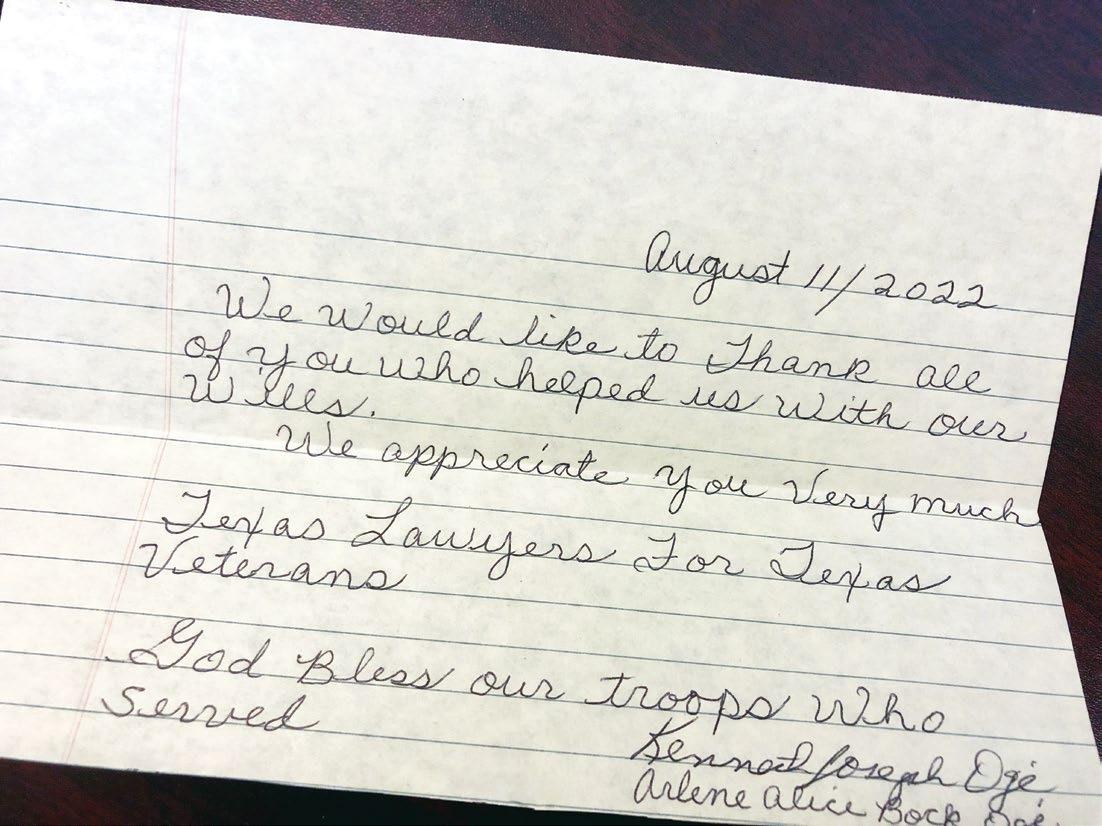 August 11/2022
We Would like to Thank all
of you Who helped us With our
Wills.
We appreciate you Very much
Texas Lawyers For Texas
Veterans
God Bless our troops Who
Served
Kenneth Joseph Ogé
Arlene Alice Bock Ogé